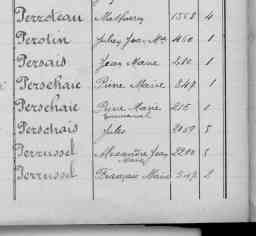 Perroteau Mathurin 1568 4
Perotin Jules Jean Me 460 1
Persais Jean Marie 480 1
Persehaie Pierre Marie 847 1
Persehaie Pierre Marie 215 1
Emmanuel
Perschais Jules 2059 5
Perrussel Alexandre Jean 2200 5
Marie
Perrussel François Marie 542 2